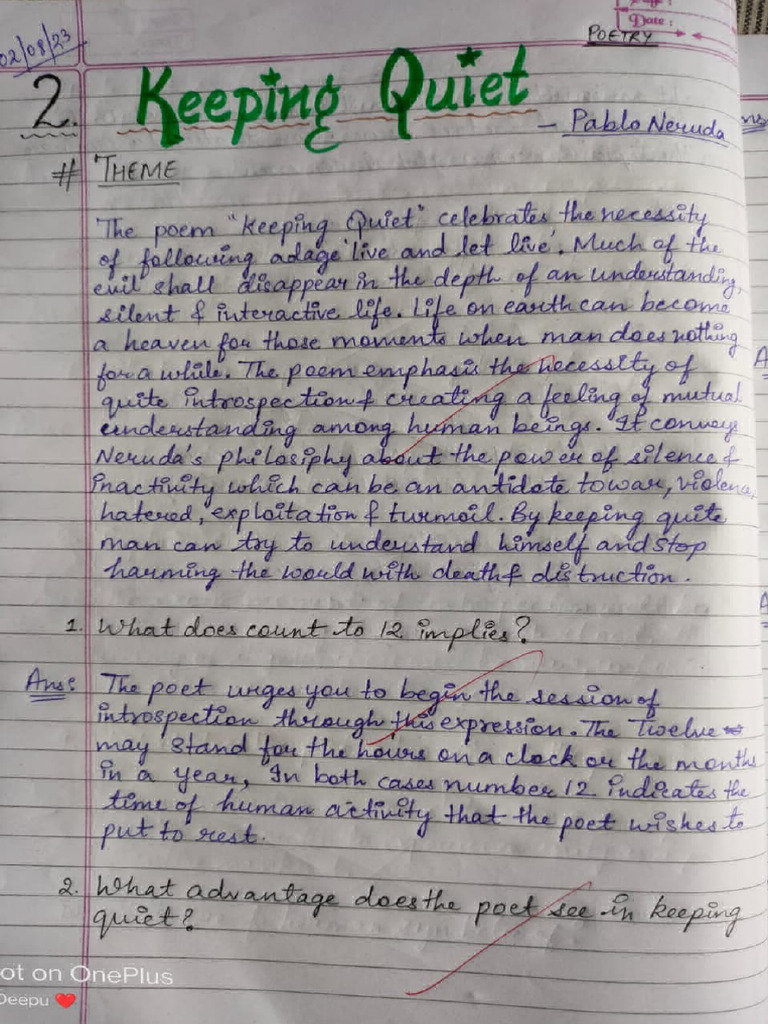 02/08/23
Date :
POETRY
2. Keeping Quiet
- Pablo Neruda
# THEME
The poem "Keeping Quiet" celebrates the necessity
of following adage 'live and let live'. Much of the
evil shall disappear in the depth of an understanding,
silent & interactive life. Life on earth can become
a heaven for those moments when man does nothing
for a while. The poem emphasis the necessity of
quite introspection & creating a feeling of mutual
understanding among human beings. It conveys
Neruda's philosiphy about the power of silence &
inactivity which can be an antidote to war, violence,
hatered, exploitation & turmoil. By keeping quite
man can try to understand himself and stop
harming the would with death & distruction.
1. What does count to 12 implies?
Ans: The poet urges you to begin the session of
introspection through this expression. The Twelve
may stand for the hours on a clock or the months
in a year, In both cases number 12 indicates the
time of human activity that the poet wishes to
put to rest.
2. What advantage does the poet see in keeping
quiet?
ot on OnePlus
Deepu ❤️